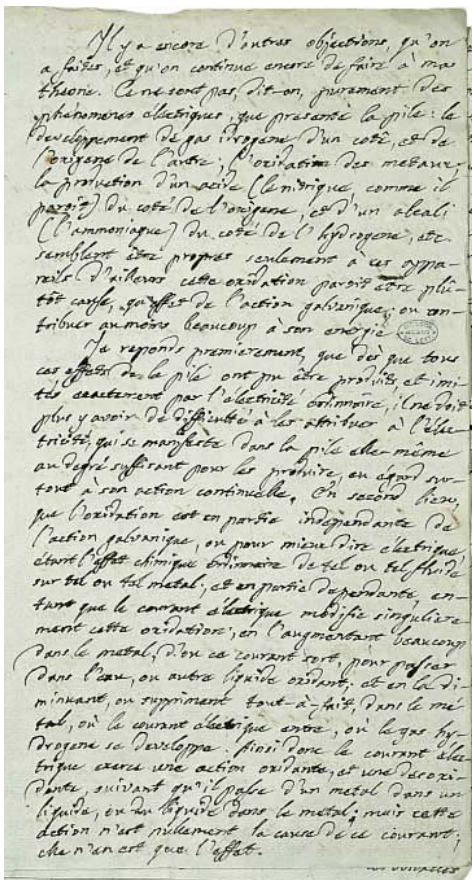 Il y a encore d'autres objections, qu'on
a faites, et qu'on continue encore de faire à ma
theorie. Ce ne sont pas, dit-on, purement des
phénomenes électriques, que presente la pile: le
developpement de gas idrogene d'un coté, et de
l'oxigene de l'autre; l'oxidation des metaux;
la production d'un acide (le nitrique, comme il
paroit) du coté de l'oxigene, et d'un alcali
(l'ammoniaque) du coté de l'hydrogene, etc
semblent être propres seulement à ces appa-
reils. D'ailleurs cette oxidation paroit être plû-
tôt cause, qu'effet de l'action galvanique, ou con-
tribuer au moins beaucoup à son energie.
Je reponds premierement, que dès que tous
ces effets de la pile ont pu être produits, et imi-
tés exactement par l'électricité ordinaire, il ne doit
plus y avoir de difficulté à les attribuer à l'élec-
tricité, qui se manifeste dans la pile elle-même
au degré suffisant pour les produire, eu egard sur-
tout à son action continuelle. En second lieu,
que l'oxidation est en partie independante de
l'action galvanique, ou pour mieux dire électrique,
étant l'effet chimique ordinaire de tel ou tel fluide
sur tel ou tel metal, et en partie dependante, en-
tant que le courant électrique modifie singuliere-
ment cette oxidation, en l'augmentant beaucoup
dans le metal, d'où ce courant sort, pour passer
dans l'eau, ou autre liquide oxidant; et en la di-
minuant, ou supprimant tout-à-fait, dans le mé-
tal, où le courant électrique entre, où le gas hy-
drogene se developpe. Ainsi donc le courant élec-
trique exerce une action oxidante, et une desoxi-
dante, suivant qu'il passe d'un metal dans un
liquide, ou du liquide dans le metal; mais cette
action n'est nulement la cause de ce courant;
elle n'en est que l'effet.